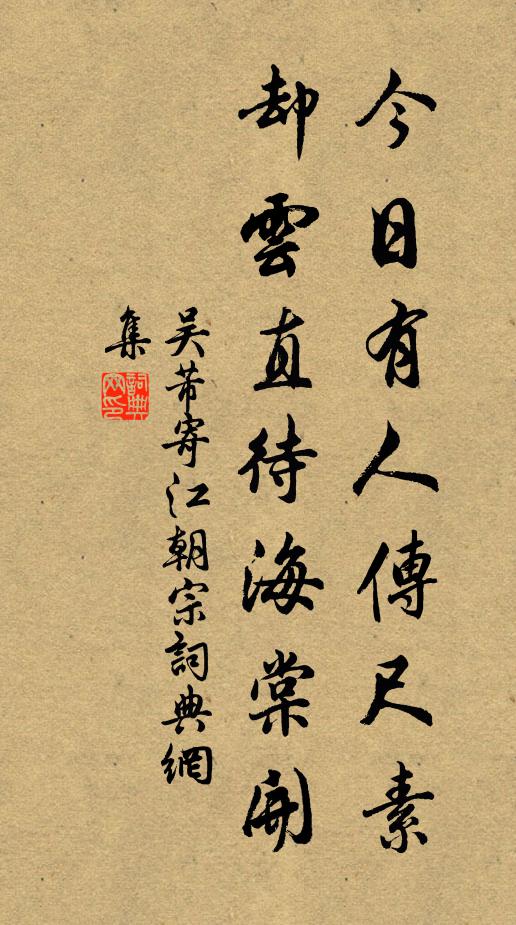 今日有人傳尺素
却雲直待海棠開
吴芾寄江朝宗詞典網
集
詞典
网印